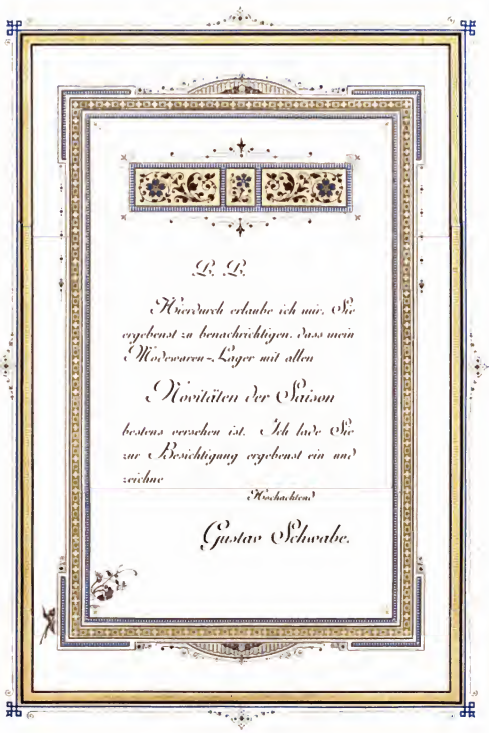 P. P.
Hierdurch erlaube ich mir, Sie
ergebenst zu benachrichtigen, dass mein
Modewaren-Lager mit allen
Novitäten der Saison
bestens versehen ist. Ich lade Sie
zur Besichtigung ergebenst ein und
zeichne
Hochachtend
Gustav Schwabe.